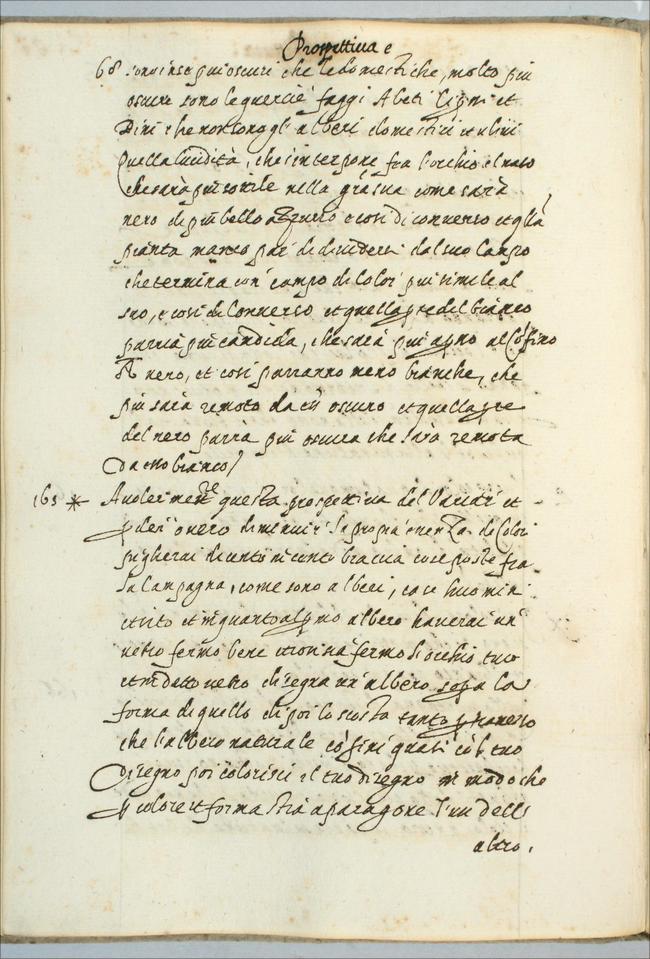 Prospettiua e
68 sono inse piu oscuri che le domestiche, molto piu
oscure sono le quercie faggi Abeti et
Pini che non sono gli alberi domestici et uliui
quella lucidità, che s'interpone fra l'occhio el nero
che sarà piu sotile nella grã sua como sarà
nero di piu bello azzurro e cosi di conuerso et q̃lla
pianta manco par di diuidersi dal suo campo
che termina con campo di color piu simile al
suo, e cosi di conuerso et quella pte del bianco
parrà piu candida, che sarà piu al cõfino
nero, et cosi parranno meno bianche, che
piu sarà remoto da eß oscuro et quella pte
del nero parrà piu oscura che sarà remota
da eso bianco/
165 * A uoler mette questa prospettiua del uariar et
pder' o uero diminuir' la propria essenza de colori
pigherai di cento in cento braccia cose poste fra
la campagna, come sono alberi, case huomini
et siti et in quanto al pmo albero hauerai un'
uetro fermo bene et cosi sia fermo l'occhio tuo
et in detto uetro disegna un'albero sopra la
forma di quello di poi lo scosta tanto p trauerso
che l'albero naturale cõfini quasi cõ'l tuo
disegno poi colorisci il tuo disegno in modo che
p colore et forma stia a paragone l'un dell'
altro.